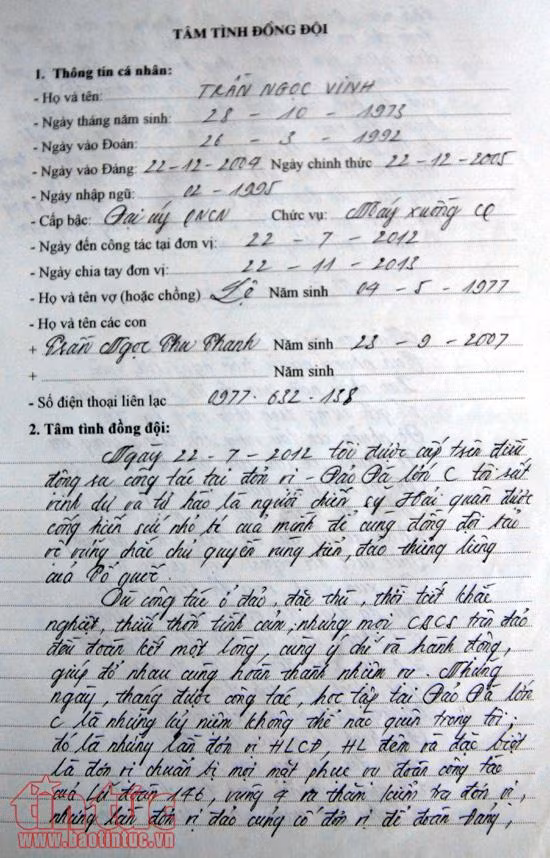 TÂM TÌNH ĐỒNG ĐỘI
1. Thông tin cá nhân:
- Họ và tên: TRẦN NGỌC VINH
- Ngày tháng năm sinh: 28 - 10 - 1973
- Ngày vào Đoàn: 26 - 3 - 1992
- Ngày vào Đảng: 22-12-2004 Ngày chính thức 22-12-2005
- Ngày nhập ngũ: 02 - 1995
- Cấp bậc: Đại úy QNCN Chức vụ: Máy xuồng CQ
- Ngày đến công tác tại đơn vị: 22 - 7 - 2012
- Ngày chia tay đơn vị: 22 - 11 - 2013
- Họ và tên vợ (hoặc chồng) Lệ Năm sinh 04 - 5 - 1977
- Họ và tên các con
+ Trần Ngọc Thu Thanh Năm sinh 23 - 9 - 2007
+ Năm sinh
- Số điện thoại liên lạc 0977.632.138
2. Tâm tình đồng đội:
Ngày 22 - 7 - 2012 tôi được cấp trên điều
động ra công tác tại đơn vị - Đảo Đá lớn C tôi rất
vinh dự và tự hào là người chiến sỹ Hải quân được
cống hiến sức nhỏ bé của mình để cùng đồng đội bảo
vệ vững chắc chủ quyền vùng biển, đảo thiêng liêng
của Tổ quốc.
Dù công tác ở đảo, đặc thù, thời tiết khắc
nghiệt, thiếu thốn tình cảm; nhưng mọi CBCS trên đảo
đều đoàn kết một lòng, cùng ý chí và hành động,
giúp đỡ nhau cùng hoàn thành nhiệm vụ. Những
ngày, tháng được công tác, học tập tại Đảo Đá lớn
C là những kỷ niệm không thể nào quên trong tôi;
đó là những lần đơn vị HLCĐ, HL đêm và đặc biệt
là đơn vị chuẩn bị mọi mặt phục vụ đoàn công tác
của Lữ đoàn 146, vùng 4 ra thăm kiểm tra đơn vị,
những lần đơn vị đảo củng cố đơn vị để đoàn Đảng,
tin tức
© www.baotintuc.vn